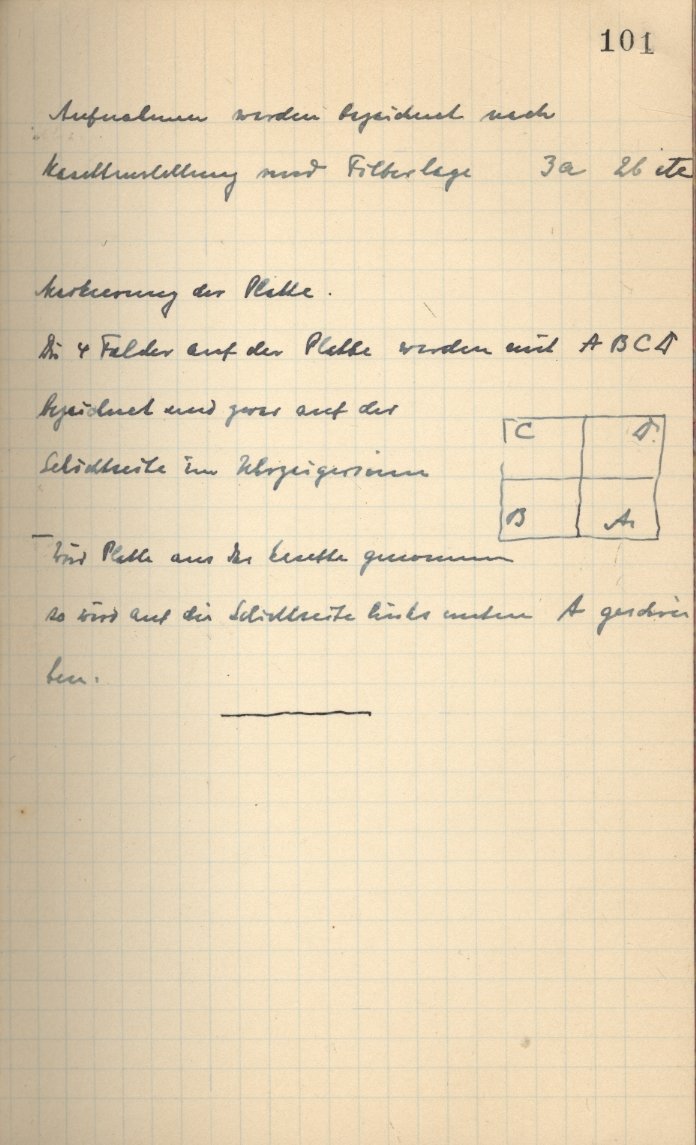 101
Aufnahmen werden bezeichnet nach
Kasettenstellung und Filterlage 3a 2b etc
Markierung der Platte.
Die 4 Felder auf der Platte werden mit A B C D
bezeichnet und zwar auf der
Schichtseite im Uhrzeigersinne
C D
B A
Wird Platte aus der Kasette genommen
so wird auf die Schichtseite links unten A geschrie
ben.